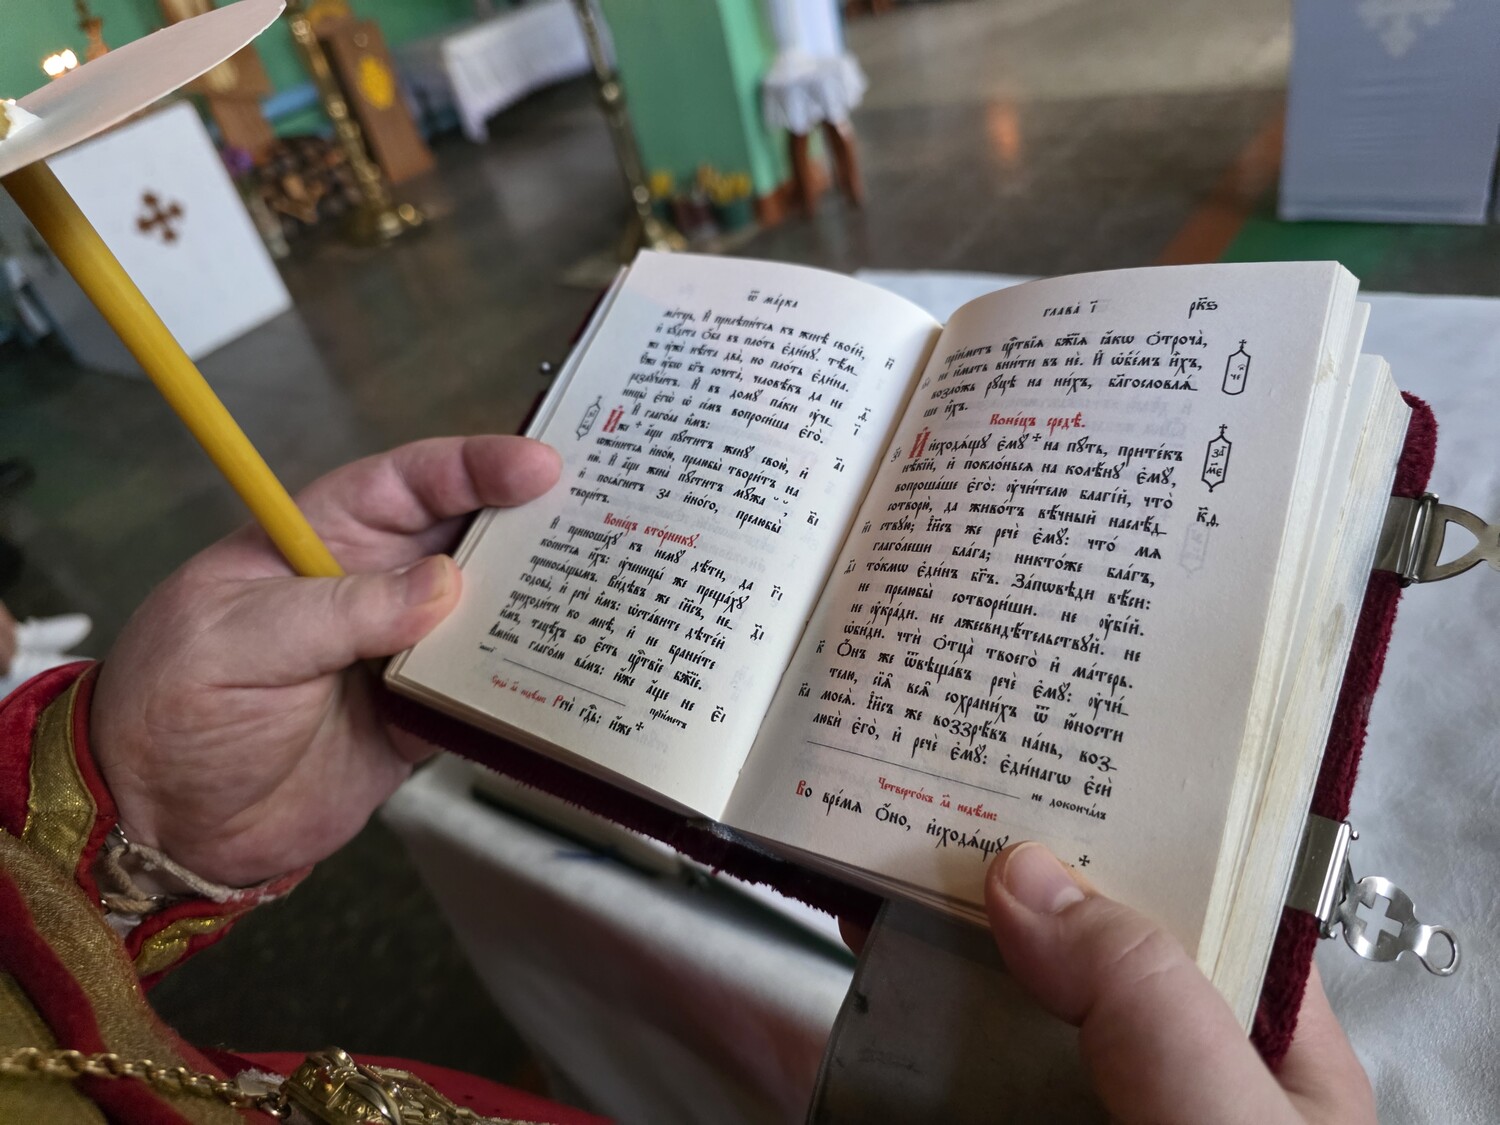 ѿ ма́рка
ма́терь. И҆ прилѣпи́тсѧ къ женѣ̀ свое́й,
и҆ бꙋ́дета ѻ҆́ба въ пло́ть є҆ди́нꙋ. тѣ́м_
же ᲂу҆жѐ нѣ́ста два̀, но пло́ть є҆ди́на.
Є҆́же ᲂу҆̀бо бг҃ъ сочета̀, человѣ́къ да не
разлꙋча́етъ. И҆ въ домꙋ̀ па́ки ᲂу҆че_
ницы̀ є҆гѡ̀ ѡ҆ се́мъ вопроси́ша є҆го̀.
И҆ глаго́ла и҆̀мъ:
и҆́же + а҆́ще пꙋ́ститъ женꙋ̀ свою̀, и҆
ѡ҆же́нитсѧ и҆но́ю, прелюбы̀ твори́тъ на
ню̀. И҆ а҆́ще жена̀ пꙋ́ститъ мꙋ́жа
и҆ посѧ́гнетъ за и҆но́го, прелюбы̀
твори́тъ.
Коне́цъ вто́рникꙋ.
И҆ приноша́хꙋ къ немꙋ̀ дѣ́ти, да
ко́снетсѧ и҆́хъ: ᲂу҆ченицы́ же преща́хꙋ
приносѧ́щымъ. Ви́дѣвъ же і҆и҃съ, не_
годова̀, и҆ речѐ и҆̀мъ: ѡ҆ста́вите дѣте́й
приходи́ти ко мнѣ̀, и҆ не брани́те
и҆̀мъ, тацѣ́хъ бо є҆́сть црⷭ҇твїе бж҃їе.
А҆ми́нь глаго́лю ва́мъ: и҆́же а҆́ще не
прїи́метъ
Речѐ гдⷭ҇ь: и҆́же +
глава̀ і҃
рк҃ѕ
прїи́метъ црⷭ҇твїѧ бж҃їѧ ꙗ҆́кѡ ѻ҆троча̀,
не и҆́мать вни́ти въ нѐ. И҆ ѡ҆бе́мъ и҆̀хъ,
возло́жь рꙋ́цѣ на ни́хъ, благословлѧ́_
ше и҆̀хъ.
Коне́цъ средѣ̀.
И҆ и҆сходѧ́щꙋ є҆мꙋ̀ + на пꙋ́ть, прите́къ
нѣ́кїй, и҆ покло́ньсѧ на колѣ̑нꙋ є҆мꙋ̀,
вопроша́ше є҆го̀: ᲂу҆чи́телю благі́й, что̀
сотворю̀, да живо́тъ вѣ́чный наслѣ́д_
ствꙋю; І҆и҃съ же речѐ є҆мꙋ̀: что́ мѧ
глаго́леши бла́га; никто́же бла́гъ,
то́кмѡ є҆ди́нъ бг҃ъ. За́пѡвѣди вѣ́си:
не прелюбы̀ сотвори́ши. не ᲂу҆бі́й.
не ᲂу҆кра́ди. не лжесвидѣ́тельствꙋй. не
ѡ҆би́ди. чтѝ ѻ҆тца̀ твоего̀ и҆ ма́терь.
Ѻ҆́нъ же ѿвѣща́въ речѐ є҆мꙋ̀: ᲂу҆чи́_
телю, сїѧ̑ всѧ̑ сохрани́хъ ѿ ю҆́ности
моеѧ̀. І҆и҃съ же воззрѣ́въ на́нь, воз_
любѝ є҆го̀, и҆ речѐ є҆мꙋ̀: є҆ди́нагѡ є҆сѝ
не доконча́лъ
Четверто́къ л҃а недѣ́ли:
Во вре́мѧ ѻ҆́но, и҆сходѧ́щꙋ